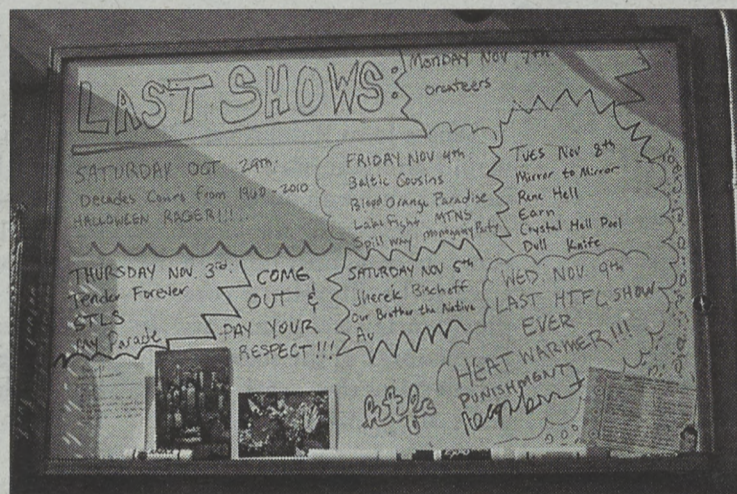 LAST SHOWS:
MONDAY NOV 7th
oreateers
SATURDAY OCT 29th:
Decades Covers from 1940-2010
HALLOWEEN RAGER!!!
FRIDAY NOV 4th:
Baltic Cousins
Blood Orange Paradise
Lake Fight MTNS
Spill Way Mahogany Party
TUES NOV 8th
Mirror to Mirror
Rene Hell
Earn
Crystal Hell Pool
Dull Knife
THURSDAY NOV. 3rd:
Tender Forever
STLS
Parade
COME
OUT &
PAY YOUR
RESPECT!!!
SATURDAY NOV 5th
Jherek Bischoff
Our Brother the Native
Au
WED. NOV 9th
LAST HTFC SHOW
EVER
HEAT WARMER!!!
PUNISHMENT
htfc